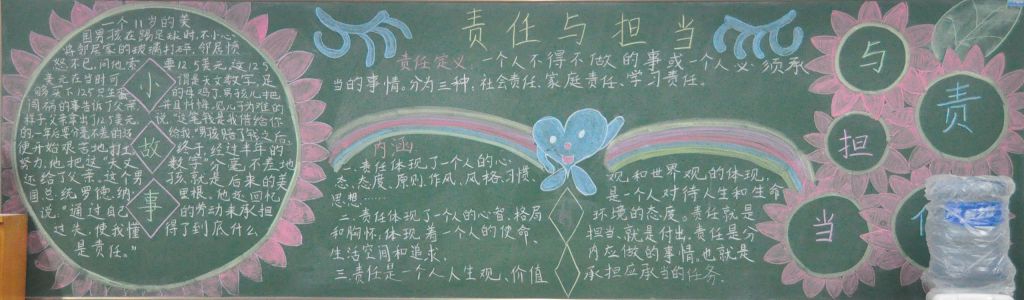 责任与担当
一个11岁的美
国男孩在踢足球时,不小心
将邻居家的玻璃打碎,邻居愤
怒不已,问他索要12.5美元,这12.5
美元在当时可谓是天文数字,足
够买下125只生蛋的母鸡了。男孩儿把
闯祸的事告诉了父亲,并且忏悔,见儿子为难的
样子父亲拿出了12.5美元,说:“这笔钱是我借给你
的一年后要分毫不差的还给我。”男孩赔了钱之后,
便开始艰苦地打工,终于,经过半年的
努力,他把这“天文数字”分毫不差地
还给了父亲。这个男孩就是后来的美
国总统罗德·纳里根。他还回忆
说:“通过自己的劳动来承担
过失,使我懂得了到底什么
是责任。”
小
故
事
责任定义:一个人不得不做的事或一个人必须承
当的事情。分为三种:社会责任、家庭责任、学习责任。
内涵
一.责任体现了一个人的心
态、态度、原则、作风、风格、习惯
思想……
二.责任体现了一个人的心智、格局
和胸怀,体现着一个人的使命、
生活空间和追求.
三.责任是一个人人生观、价值
观、和世界观的体现,
是一个人对待人生和生命
环境的态度。责任就是
担当,就是付出.责任是分
内应做的事情,也就是
承担应承当的任务.
与
责
担
当